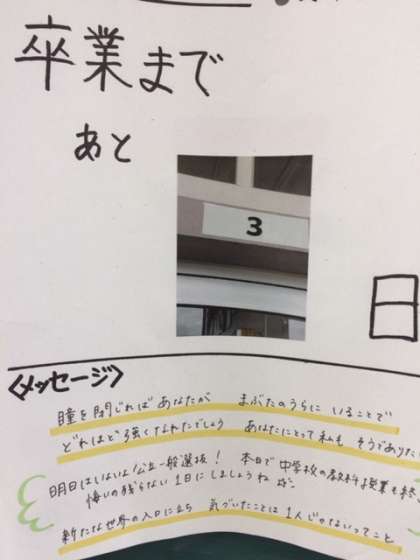 卒業まで
あと
3
日
<メッセージ>
瞳を閉じれば あなたが まぶたのうらに いることで
どれほど強くなれたでしょう あなたにとって私も そうでありたい
明日はいよいよ公立一般選抜! 本日で中学校の教科授業も終
悔いの残らない1日にしましょうね
新たな世界の入口に立ち 気づいたことは 1人じゃないってこと